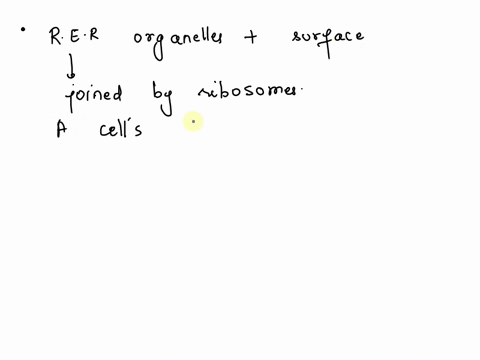 • R.E.R organelles + surface
↓
joined by ribosomes.
A cell's